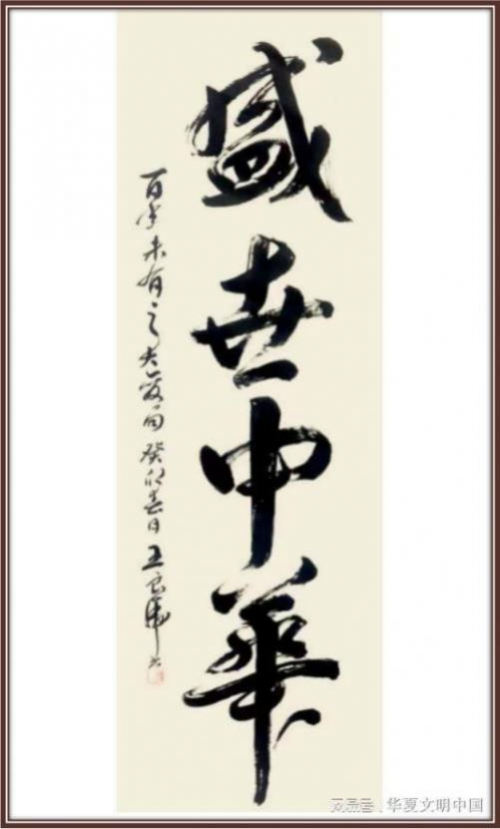 盛世中華
百年未有之大变局 癸卯春日 王
网易号 | 华夏文明中国